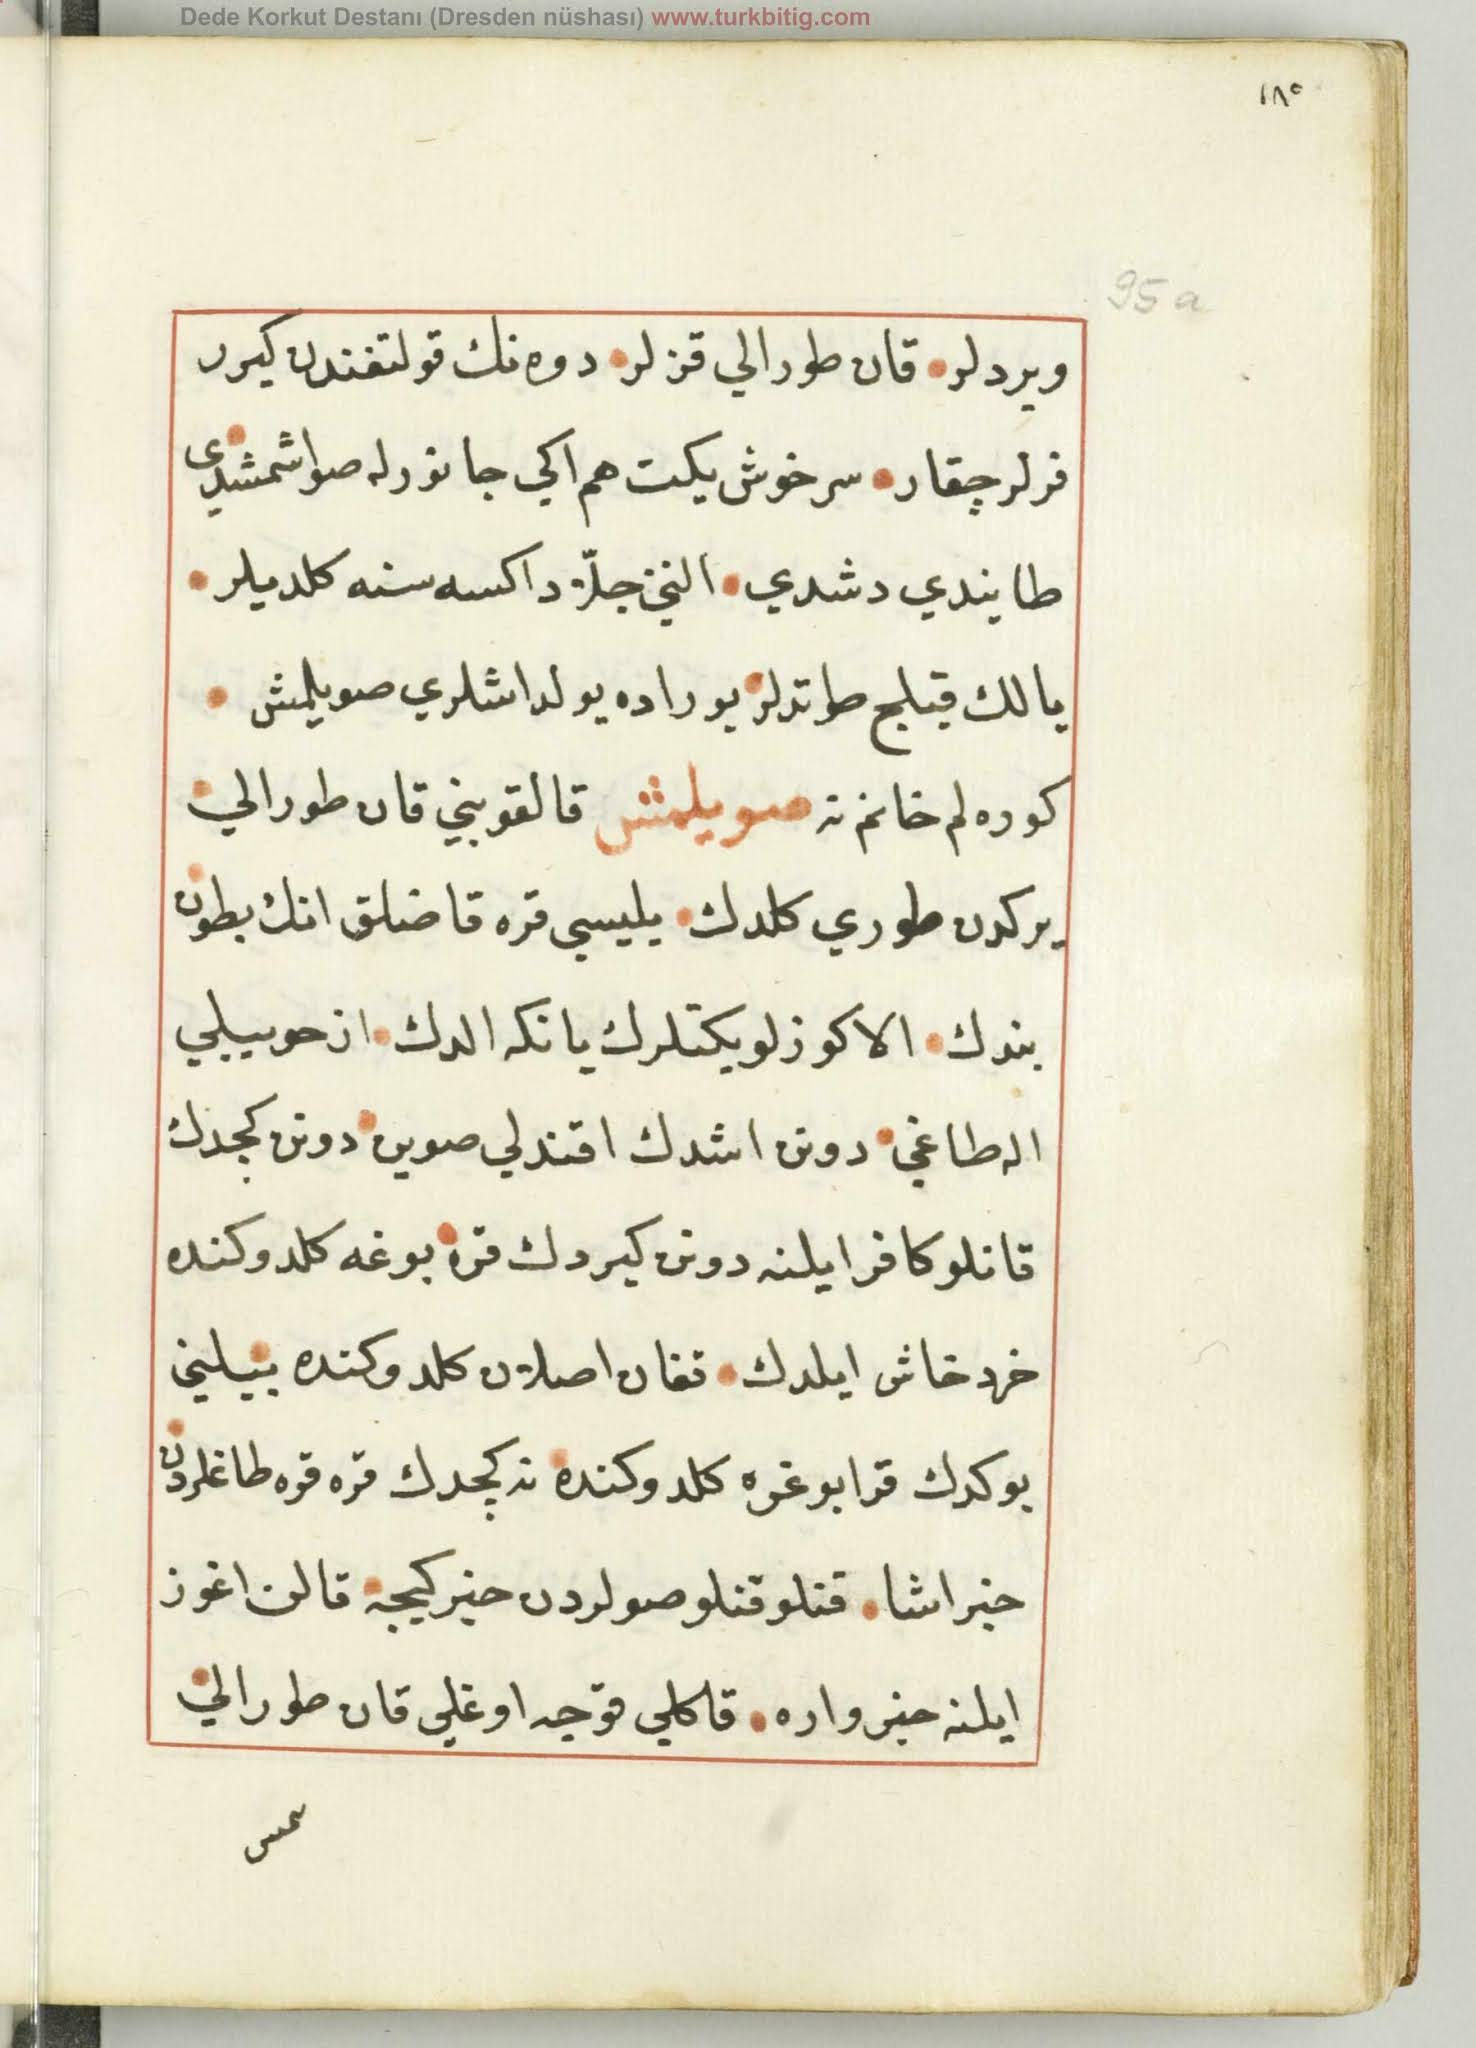 Dede Korkut Destanı (Dresden nüshası) www.turkbitig.com
١٨٥
95a
ويردلر • قان طورالي قزلر • دوه نك قولتغندن كيرر
قزلر چقار • سرخوش يكت هم اكي جانورله صواشمشدى
طايندي دشدي • النجى جلاد اكسه سنه كلديلر •
يالك قيلج طوتدلر بوراده يولداشلري صويلمش •
كوره لم خانم نه صويلمش قالقوبني قان طورالي
يركدن طوري كلدك • يليسي قره قاضلق اتك بطون
بندك • الاكوزلو يكتلرك يانكه الدك • ارحو بيلي
اله طاغي • دونن اشدك اقندلي صوين • دونن كچدك
قانلو كافر ايلنه دونن كيردك قره بوغه كلدوكنده
خرد خاش ايلدك • قغان اصلان كلدوكنده بيلني
بوكدك قرا بوغره كلدوكنده نه كچدك قره قره طاغلردن
خبر اشا • قنلو قنلو صولردن خبر كيچه قالن اغوز
ايلنه خبر واره • قاكلي قوجه اوغلي قان طورالي